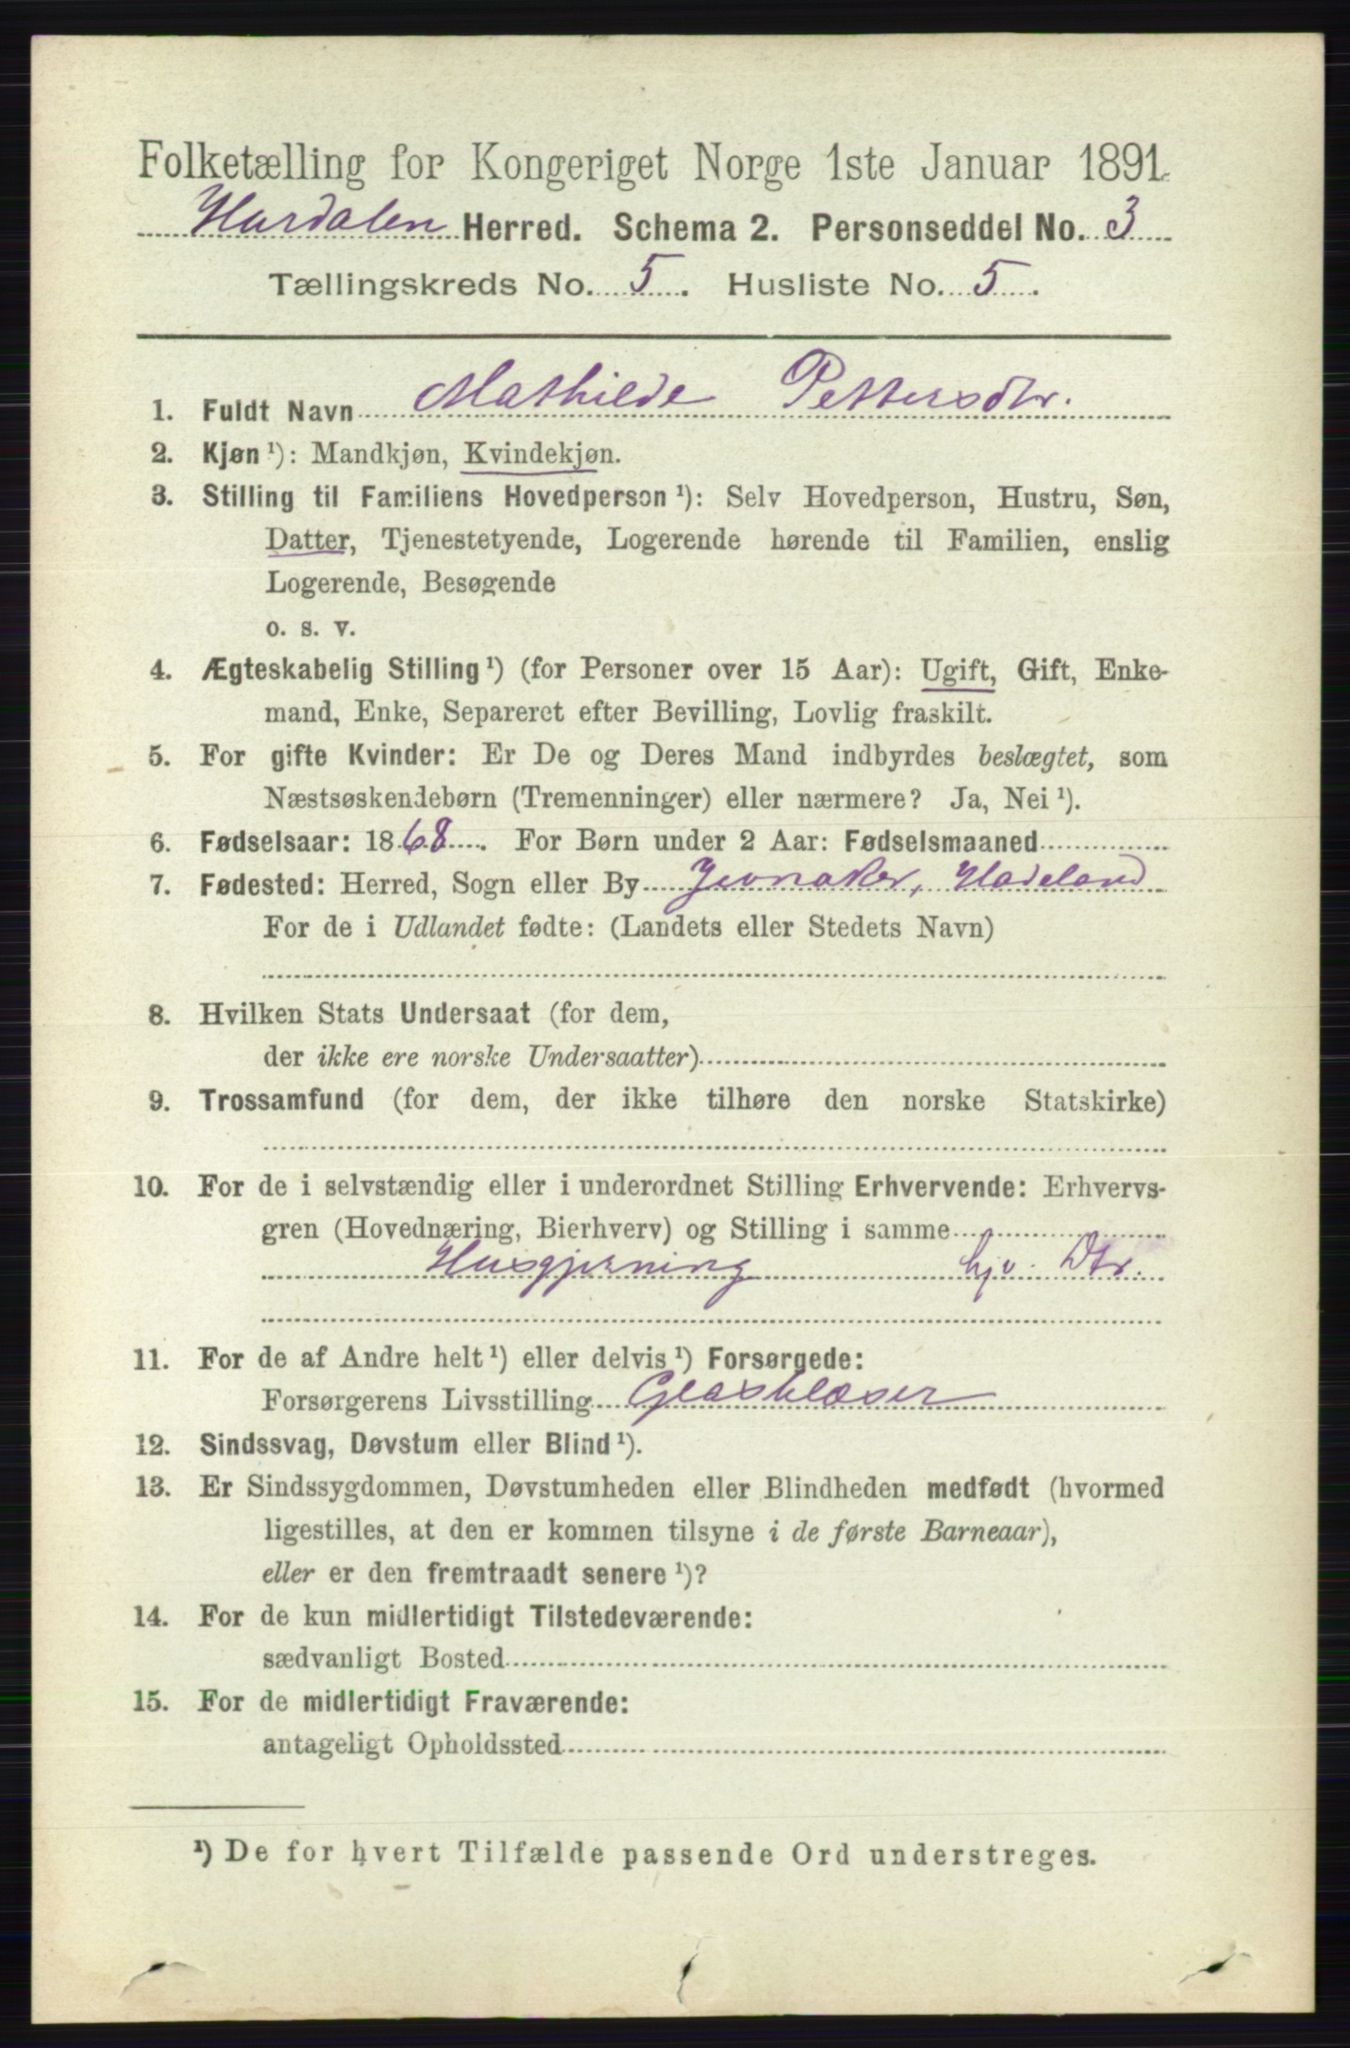 Folketælling for Kongeriget Norge 1ste Januar 1891.
Hurdalen Herred. Schema 2. Personseddel No. 3
Tællingskreds No. 5. Husliste No. 5.
1. Fuldt Navn Mathilde Pettersdtr.
2. Kjøn ¹): Mandkjøn, Kvindekjøn.
3. Stilling til Familiens Hovedperson ¹): Selv Hovedperson, Hustru, Søn,
Datter, Tjenestetyende, Logerende hørende til Familien, enslig
Logerende, Besøgende
o. s. v.
4. Ægteskabelig Stilling ¹) (for Personer over 15 Aar): Ugift, Gift, Enke-
mand, Enke, Separeret efter Bevilling, Lovlig fraskilt.
5. For gifte Kvinder: Er De og Deres Mand indbyrdes beslægtet, som
Næstsøskendebørn (Tremenninger) eller nærmere? Ja, Nei ¹).
6. Fødselsaar: 1868. For Børn under 2 Aar: Fødselsmaaned
7. Fødested: Herred, Sogn eller By Jevnaker, Hadeland
For de i Udlandet fødte: (Landets eller Stedets Navn)
8. Hvilken Stats Undersaat (for dem,
der ikke ere norske Undersaatter)
9. Trossamfund (for dem, der ikke tilhøre den norske Statskirke)
10. For de i selvstændig eller i underordnet Stilling Erhvervende: Erhvervs-
gren (Hovednæring, Bierhverv) og Stilling i samme
Husgjerning hjv. Dtr.
11. For de af Andre helt ¹) eller delvis ¹) Forsørgede:
Forsørgerens Livsstilling Glasblæser
12. Sindssvag, Døvstum eller Blind ¹).
13. Er Sindssygdommen, Døvstumheden eller Blindheden medfødt (hvormed
ligestilles, at den er kommen tilsyne i de første Barneaar),
eller er den fremtraadt senere ¹)?
14. For de kun midlertidigt Tilstedeværende:
sædvanligt Bosted
15. For de midlertidigt Fraværende:
antageligt Opholdssted
¹) De for hvert Tilfælde passende Ord understreges.